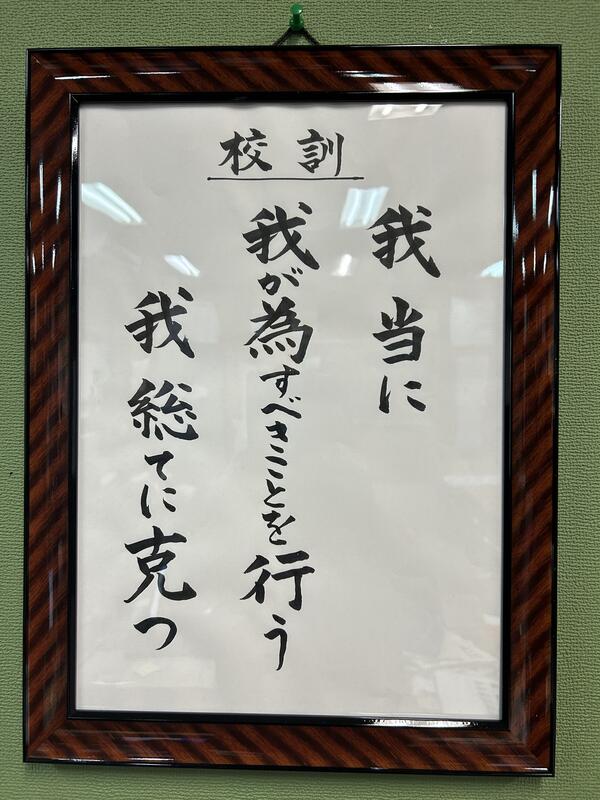 校訓
我当に
我が為すべきことを行う
我総てに克つ